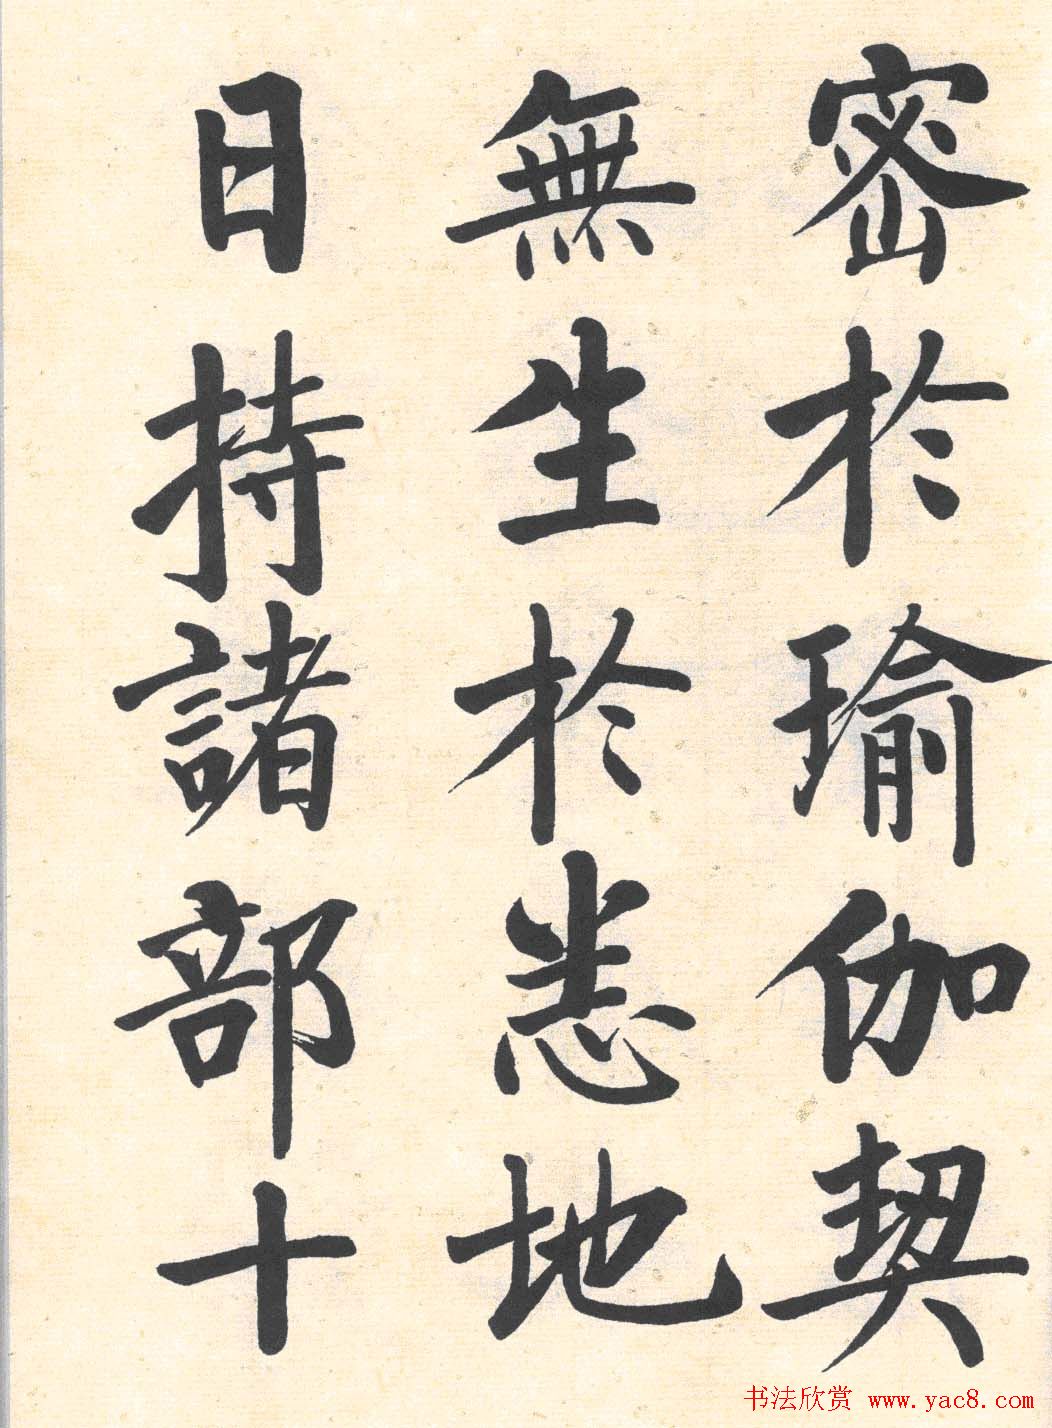 密於瑜伽契
無生於悉地
日持諸部十
书法欣赏 www.yac8.com